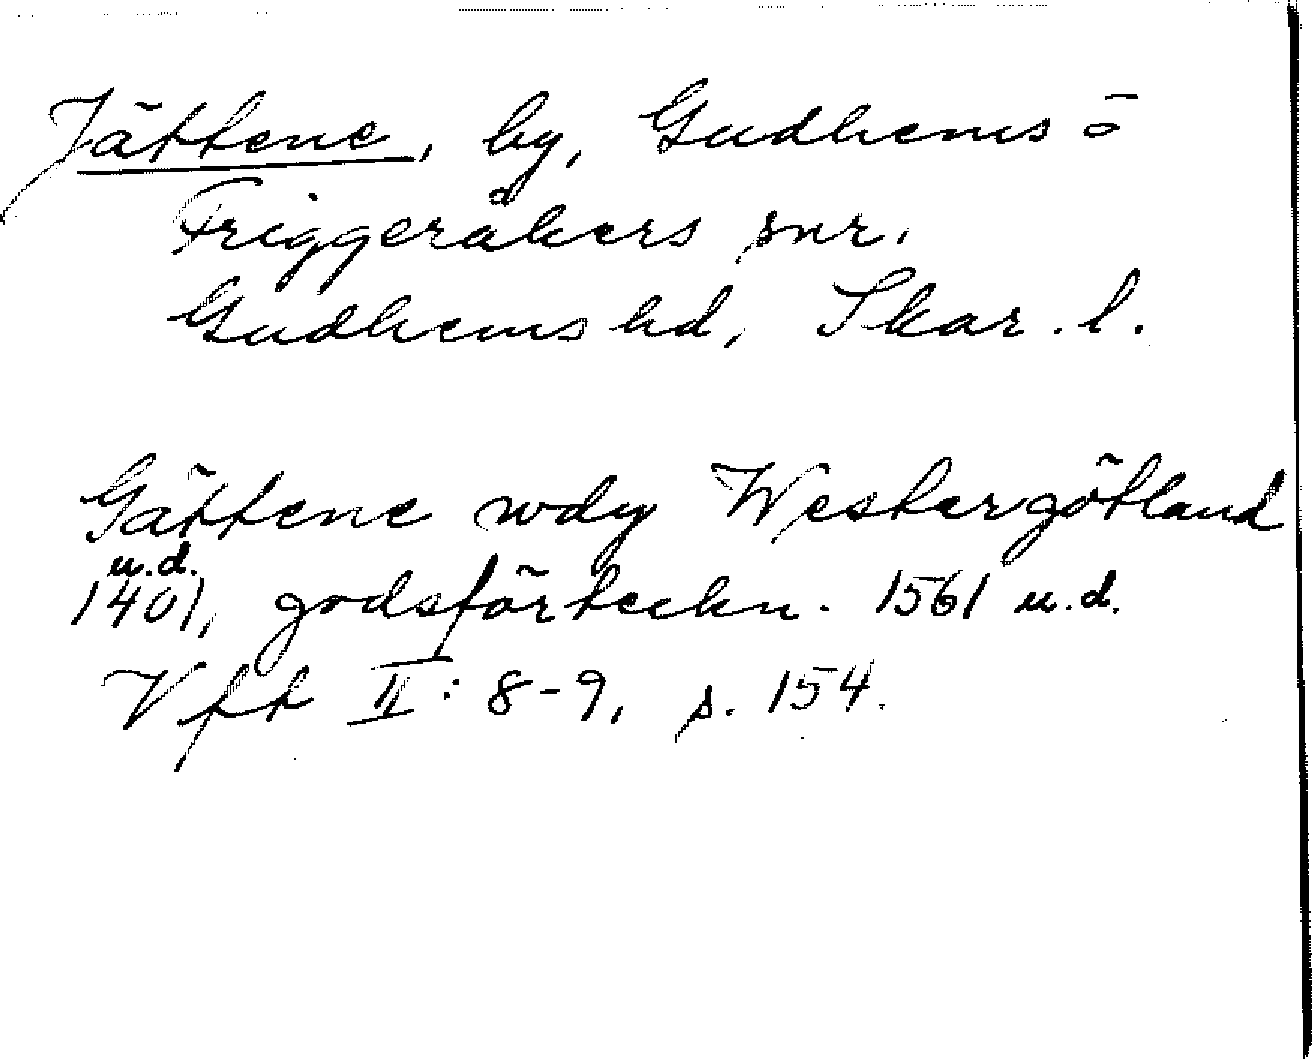 Jättene, by, Gudhems o
Friggeråkers snr.
Gudhems hd, Skar. l.
Gättene wdy Westergötland
u.d.
1401, godsförteckn. 1561 u.d.
Vfft II: 8-9, s. 154.